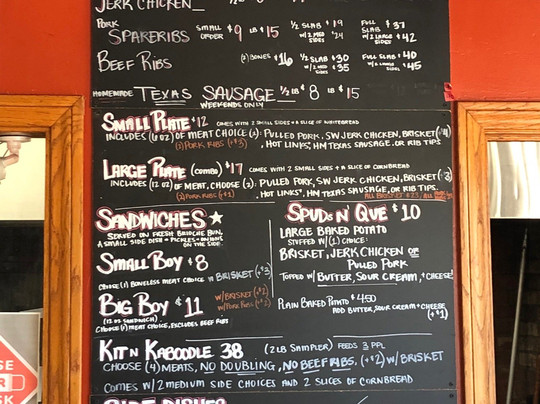 JERK CHICKEN
PORK SPARERIBS SMALL ORDER $9 LB $15 ½ SLAB $19 W/2 MED SIDES $24 FULL SLAB $37 W/2 LARGE SIDES $42
BEEF RIBS (2) BONES $16 ½ SLAB $30 W/2 MED SIDES $35 FULL SLAB $40 W/2 LARGE SIDES $45
HOMEMADE TEXAS SAUSAGE ½ LB $8 LB $15
WEEKENDS ONLY
SMALL PLATE $12 COMES WITH 2 SMALL SIDES + A SLICE OF WHITEBREAD
INCLUDES (6 OZ) OF MEAT CHOICE (2): PULLED PORK, SW JERK CHICKEN, BRISKET
(2) PORK RIBS (+$3) , HOT LINKS*, HM TEXAS SAUSAGE, OR RIB TIPS
LARGE PLATE (COMBO) $17 COMES WITH 2 SMALL SIDES + A SLICE OF CORNBREAD
INCLUDES (12 OZ) OF MEAT, CHOOSE (2): PULLED PORK, SW JERK CHICKEN, BRISKET
(2) PORK RIBS (+$1) , HOT LINKS*, HM TEXAS SAUSAGE, OR RIB TIPS.
ALL BRISKET $23, ALL
SANDWICHES ★
SERVED ON FRESH BRIOCHE BUN,
A SMALL SIDE DISH + PICKLES + ONIONS
ON THE SIDE
SMALL BOY $8
CHOOSE (1) BONELESS MEAT CHOICE W/BRISKET (+$3)
BIG BOY $11 W/BRISKET (+$2)
(12 OZ SANDWICH) W/PORK RIBS (+$2)
CHOOSE (1) MEAT CHOICE, EXCLUDES BEEF RIBS
SPUDS N' QUE $10
LARGE BAKED POTATO
STUFFED W/(1) CHOICE:
BRISKET, JERK CHICKEN OR
PULLED PORK
TOPPED W/ BUTTER, SOUR CREAM, + CHEESE!
PLAIN BAKED POTATO $4.50
ADD BUTTER, SOUR CREAM + CHEESE
(+$1)
KIT N KABOODLE 38 (2 LB SAMPLER) FEEDS 3 PPL
CHOOSE (4) MEATS, NO DOUBLING, NO BEEF RIBS, (+$2) W/BRISKET
COMES W/ 2 MEDIUM SIDE CHOICES AND 2 SLICES OF CORNBREAD
SIDE DISHES